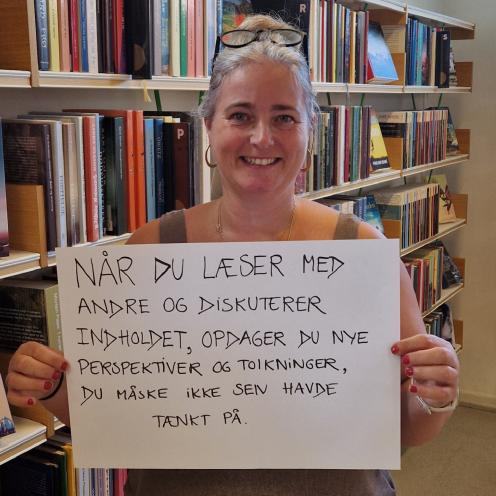 NÅR DU LÆSER MED
ANDRE OG DISKUTERER
INDHOLDET, OPDAGER DU NYE
PERSPEKTIVER OG TOLKNINGER,
DU MÅSKE IKKE SELV HAVDE
TÆNKT PÅ.